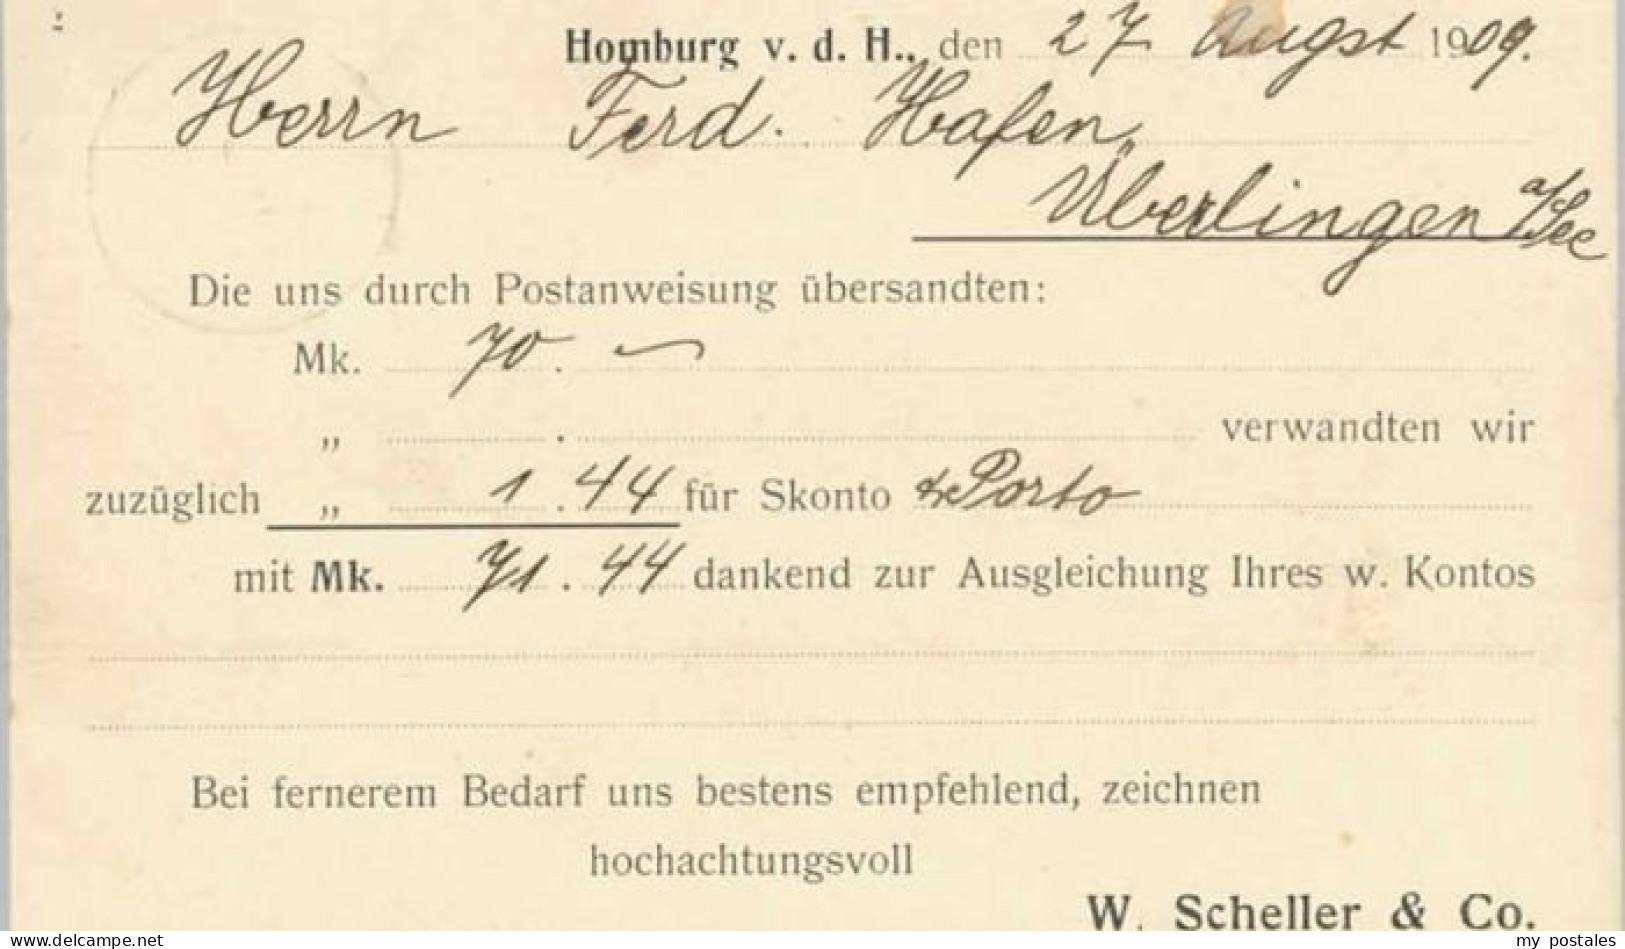 Homburg v. d. H., den 27 Augst 1909.
Herrn Ferd. Hafen,
Überlingen a/See
Die uns durch Postanweisung übersandten:
Mk. 70. —
„ . verwandten wir
zuzüglich „ 1.44 für Skonto & Porto
mit Mk. 71.44 dankend zur Ausgleichung Ihres w. Kontos
Bei fernerem Bedarf uns bestens empfehlend, zeichnen
hochachtungsvoll
W. Scheller & Co.
my postales